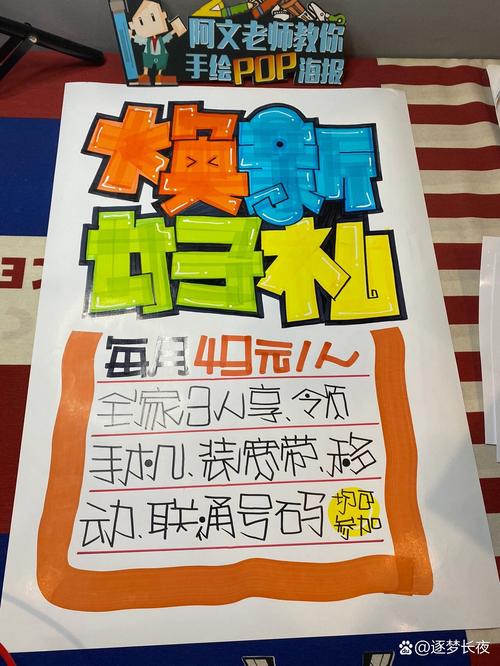 阿文老师教你
手绘POP海报
焕新
好礼
每月49元/人
全家3人享、领
手机、装宽带、移
动、联通号码
均可
参加
逐梦长夜